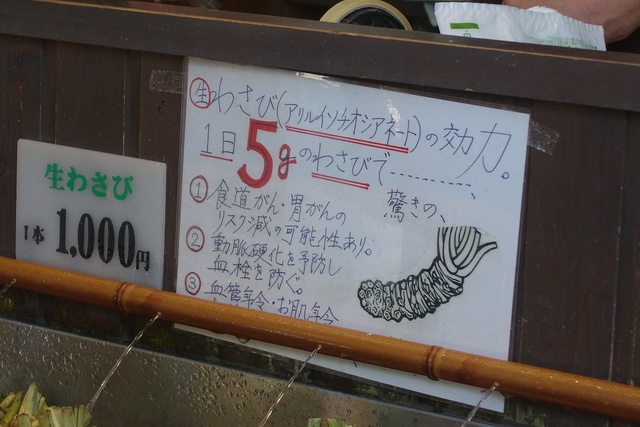 生わさび
1本 1,000円
生わさび(アリルイソチオシアネート)の効力。
1日5gのわさびで………、
驚きの、
① 食道がん・胃がんの
リスク減の可能性あり。
② 動脈硬化を予防し
血栓を防ぐ。
③ 血管年令・お肌年令